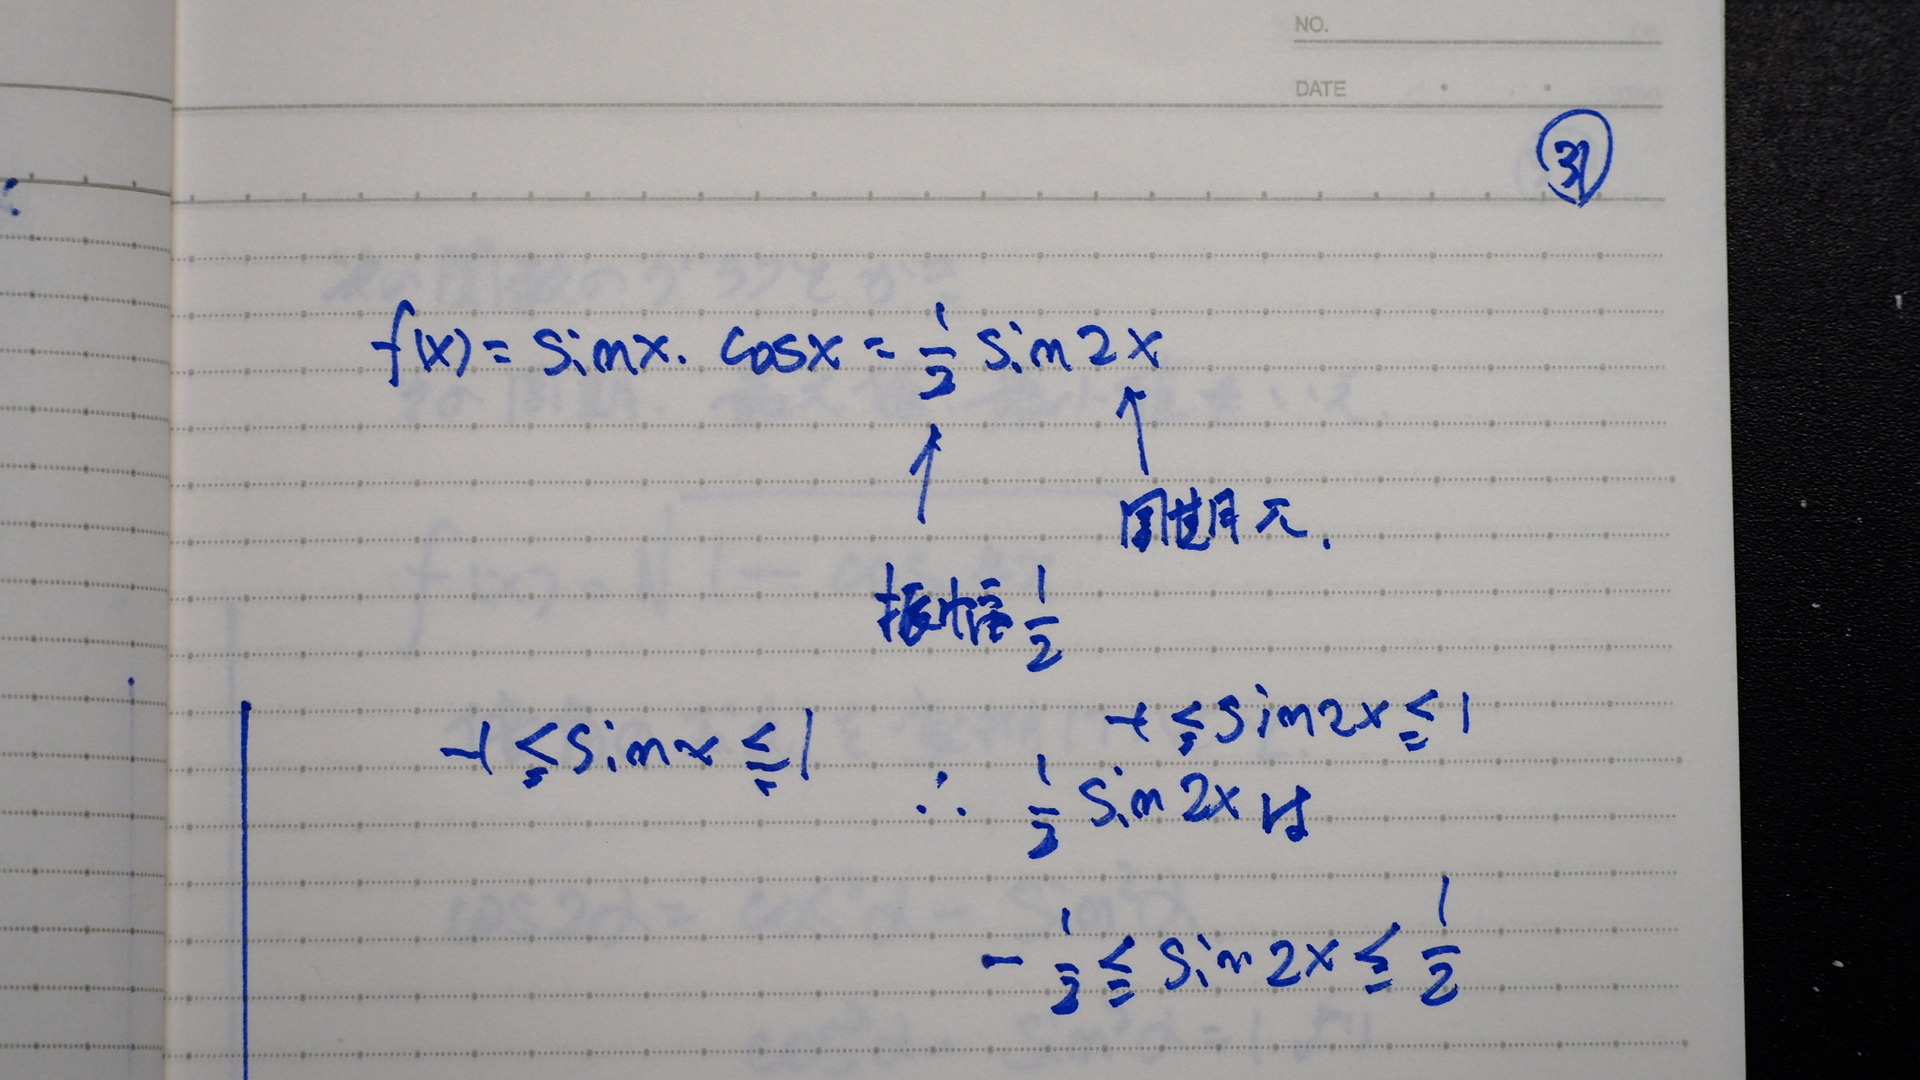 NO.
DATE
f(x) = sinx · cosx = 1/2 sin2x
周期π.
振幅 1/2
-1 ≦ sinx ≦ 1
-1 ≦ sin2x ≦ 1
∴ 1/2 sin2x は
- 1/2 ≦ sin2x ≦ 1/2